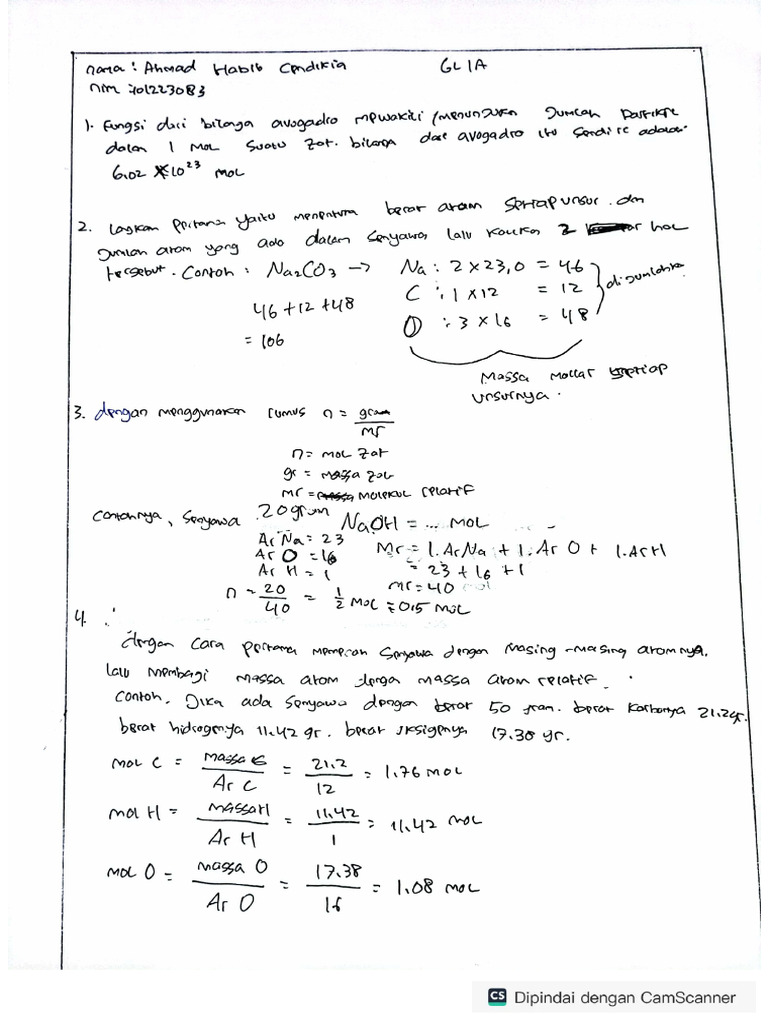 nama : Ahmad Habib Cendikia GL 1A
nim : 101223083
1. Fungsi dari bilanga avogadro mewakili /menunjukan Jumlah Partikel
dalam 1 Mol Suatu Zat. bilanga dari avogadro itu sendiri adalah
6,02 × 10²³ mol
2. Langkah Pertama yaitu menentukan berat atom setiap unsur. dan
Jumlah atom yang ada dalam senyawa lalu kalikan 2 hal
tersebut. Contoh : Na₂CO₃ → Na : 2 × 23,0 = 46
C : 1 × 12 = 12 dijumlahkan
46 + 12 + 48 O : 3 × 16 = 48
= 106
Massa mollar setiap
unsurnya.
3. dengan menggunakan rumus n = gram / mr
n = mol zat
gr = massa zat
mr = molekul relatif
Contohnya, Senyawa 20 gram NaOH = ... mol
Ar Na = 23 Mr = 1. Ar Na + 1. Ar O + 1. Ar H
Ar O = 16 = 23 + 16 + 1
Ar H = 1 mr = 40
n = 20 / 40 = 1/2 mol = 0,5 mol
4.
dengan cara pertama senyawa dengan masing-masing atomnya.
lalu membagi massa atom denga massa atom relatif.
Contoh. Jika ada senyawa dengan berat 50 gram. berat karbonya 21.2gr.
berat hidrogenya 11.42 gr. berat oksigenya 17.38 gr.
mol C = massa C / Ar C = 21,2 / 12 = 1,76 mol
mol H = massa H / Ar H = 11,42 / 1 = 11,42 mol
mol O = massa O / Ar O = 17,38 / 16 = 1,08 mol
CS Dipindai dengan CamScanner